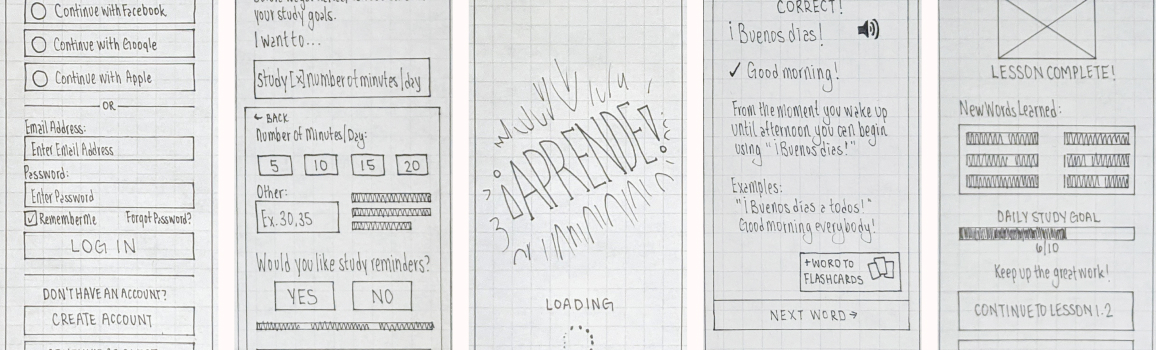 Continue with Facebook
Continue with Google
Continue with Apple
OR
Email Address:
Enter Email Address
Password:
Enter Password
Remember me Forgot Password?
LOG IN
DON'T HAVE AN ACCOUNT?
CREATE ACCOUNT
your study goals.
I want to...
Study [x] number of minutes/day
← BACK
Number of Minutes/Day:
5 10 15 20
Other:
Ex. 30, 35
Would you like study reminders?
YES NO
¡APRENDE!
LOADING
CORRECT!
¡Buenos días!
✓ Good morning!
From the moment you wake up
until afternoon you can begin
using "¡Buenos días!"
Examples:
"¡Buenos días a todos!"
Good morning everybody!
+ WORD TO
FLASHCARDS
NEXT WORD →
LESSON COMPLETE!
New Words Learned:
DAILY STUDY GOAL
6/10
Keep up the great work!
CONTINUE TO LESSON 1.2